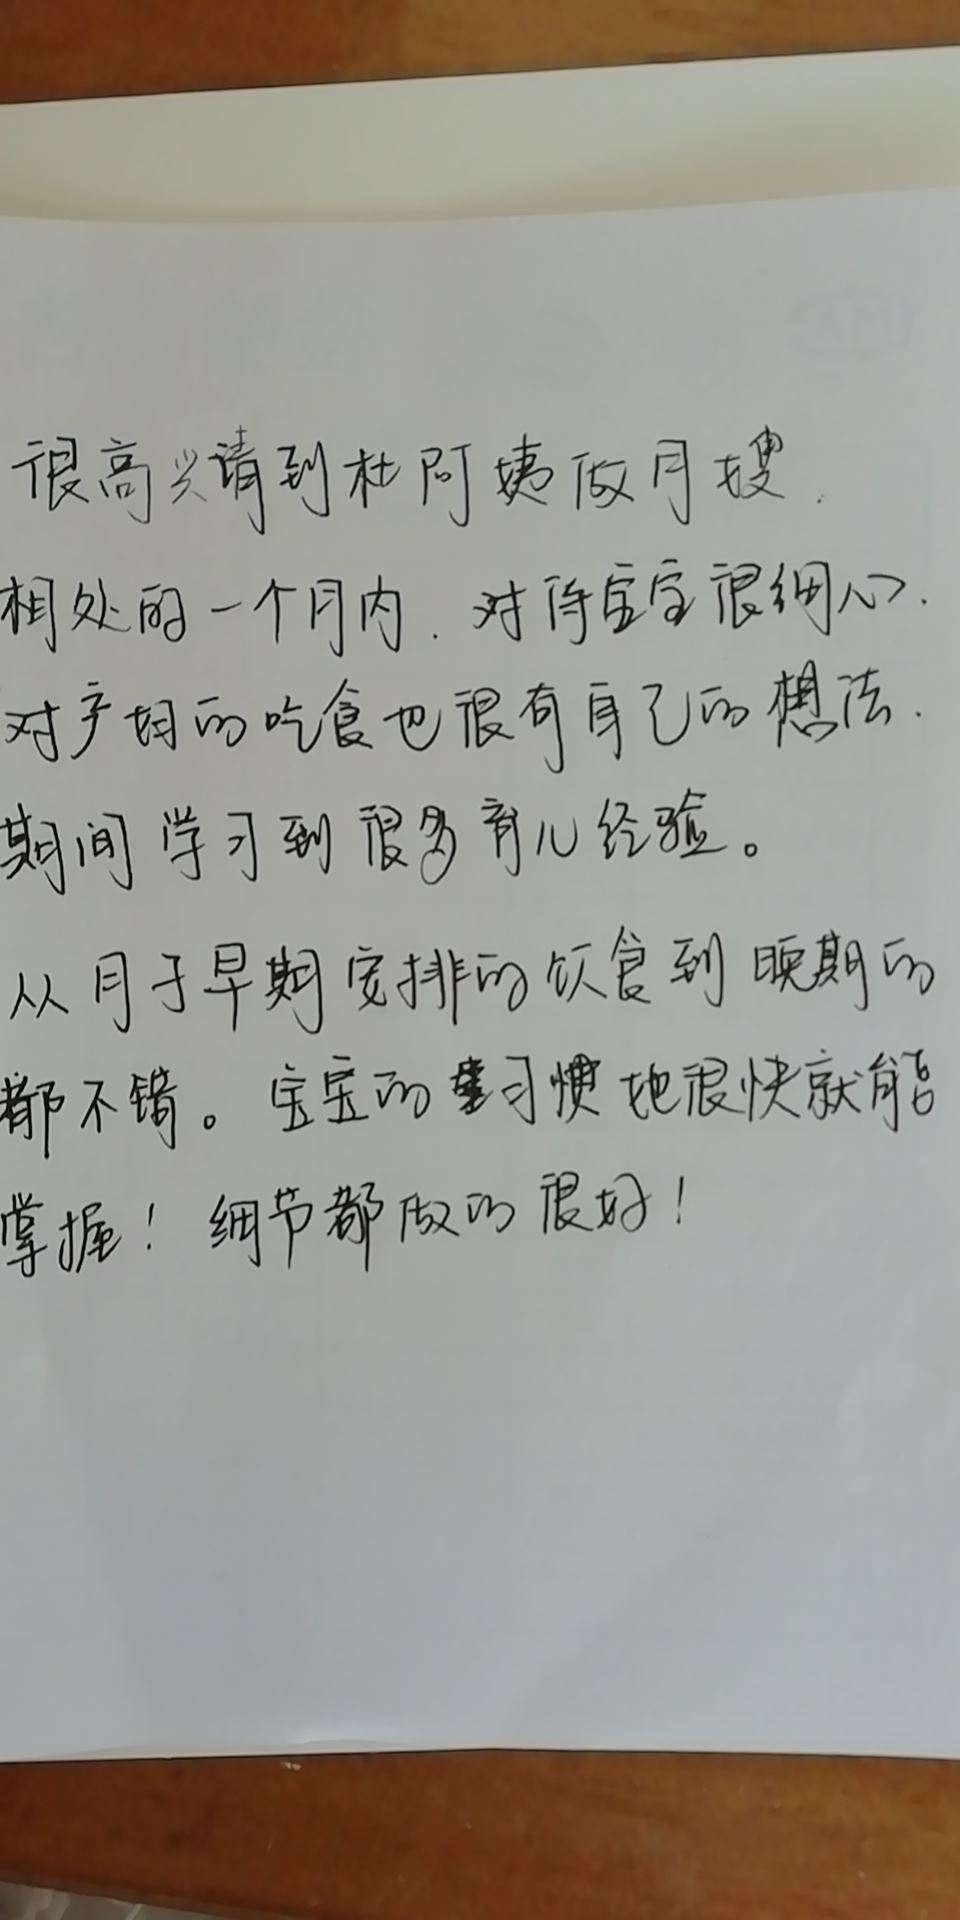 很高兴请到杜阿姨做月嫂.
相处的一个月内.对待宝宝很细心.
对产妇的吃食也很有自己的想法.
期间学习到很多育儿经验。
从月子早期安排的饮食到晚期的
都不错。宝宝的习惯她很快就能
掌握！细节都做的很好！